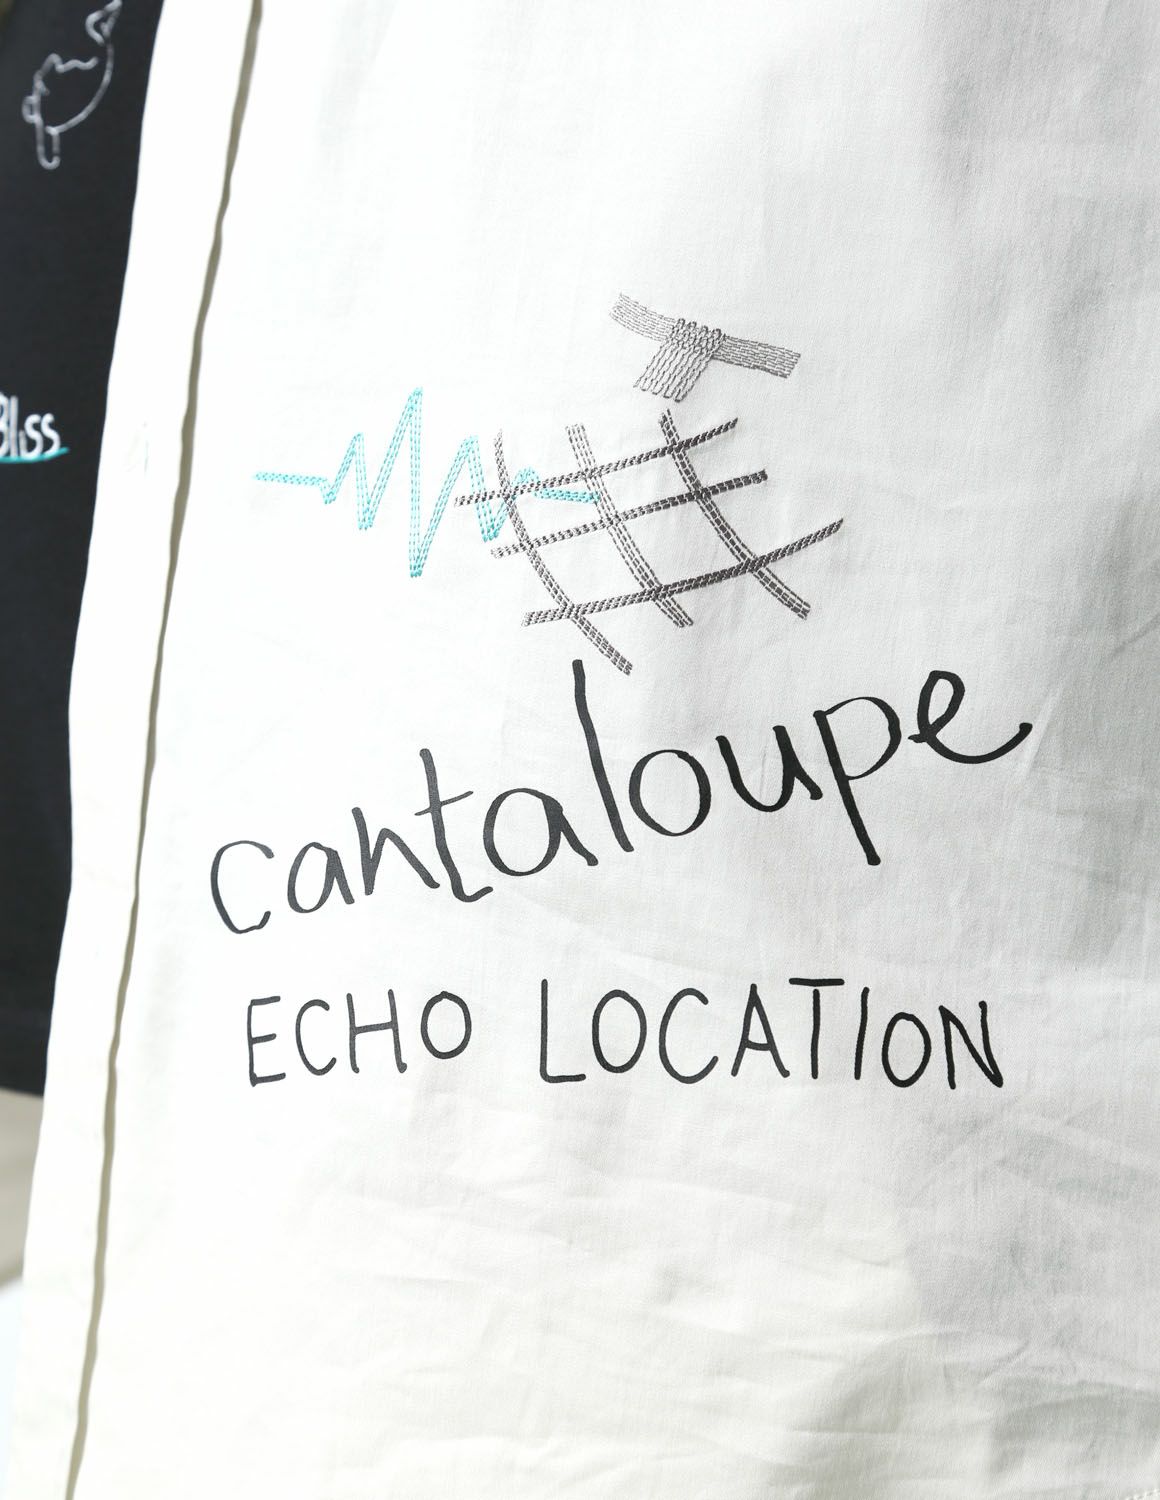 Bliss
cantaloupe
ECHO LOCATION